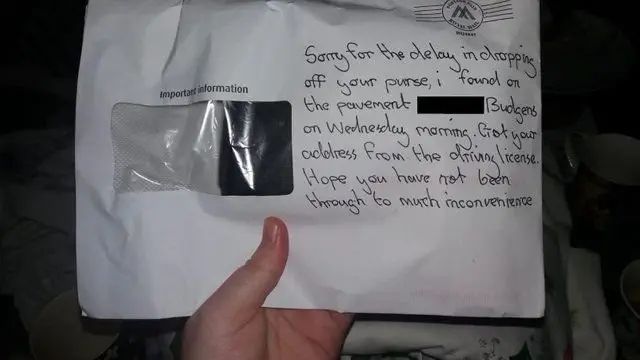 Important information
Sorry for the delay in dropping
off your purse, i found on
the pavement Budgens
on Wednesday morning. Got your
address from the driving license.
Hope you have not been
through to much inconvenience